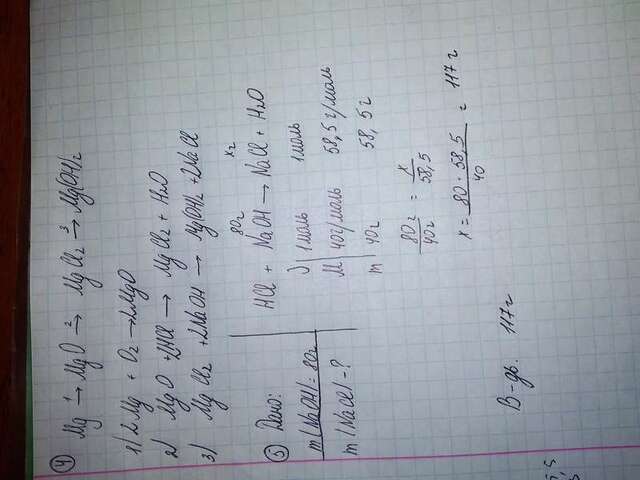 ④ Mg ¹→ MgO ²→ MgCl₂ ³→ Mg(OH)₂
1) 2Mg + O₂ → 2MgO
2) MgO + 2HCl → MgCl₂ + H₂O
3) MgCl₂ + 2NaOH → Mg(OH)₂ + 2NaCl
⑤ Дано:
m(NaOH) = 80г
m(NaCl) - ?
80г xг
HCl + NaOH → NaCl + H₂O
ν 1моль 1моль
M 40г/моль 58,5г/моль
m 40г 58,5г
80г/40г = x/58,5
x = 80 · 58,5/40 = 117г
В-дь. 117г